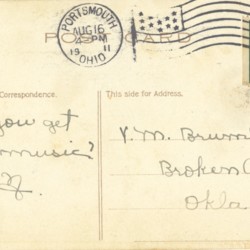 PORTSMOUTH
AUG 16
4-PM
1911
OHIO
POST CARD
Correspondence.
This side for Address.
you get
music?
Y. M. Brum
Broken
Okla.